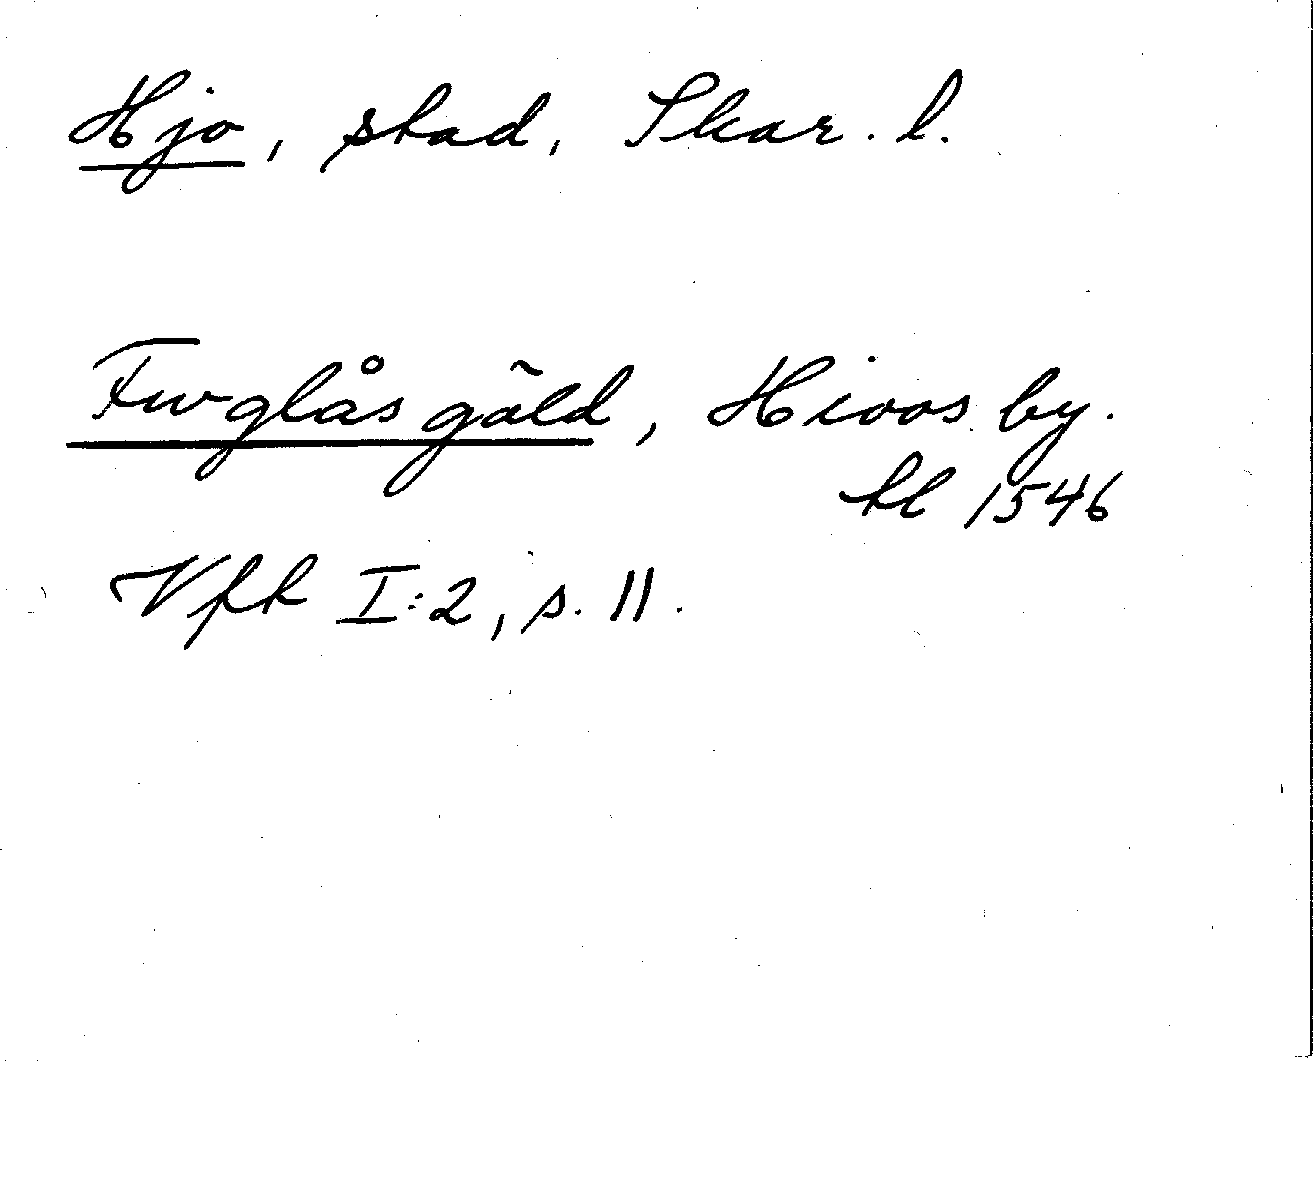 Hjo, stad, Skar. l.
Fwglås gäld, Hioos by.
kl 1546
Vfk I:2, s. 11.